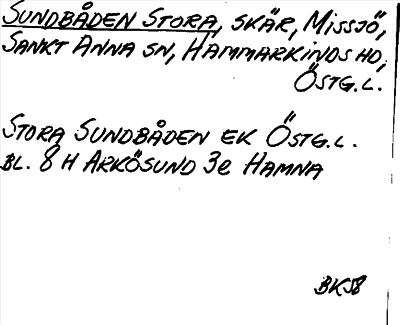 SUNDBÅDEN STORA, SKÄR, MISSJÖ,
SANKT ANNA SN, HAMMARKINDS HD,
ÖSTG.L.
STORA SUNDBÅDEN EK ÖSTG.L.
BL. 8 H ARKÖSUND 3e HAMNA
BK58